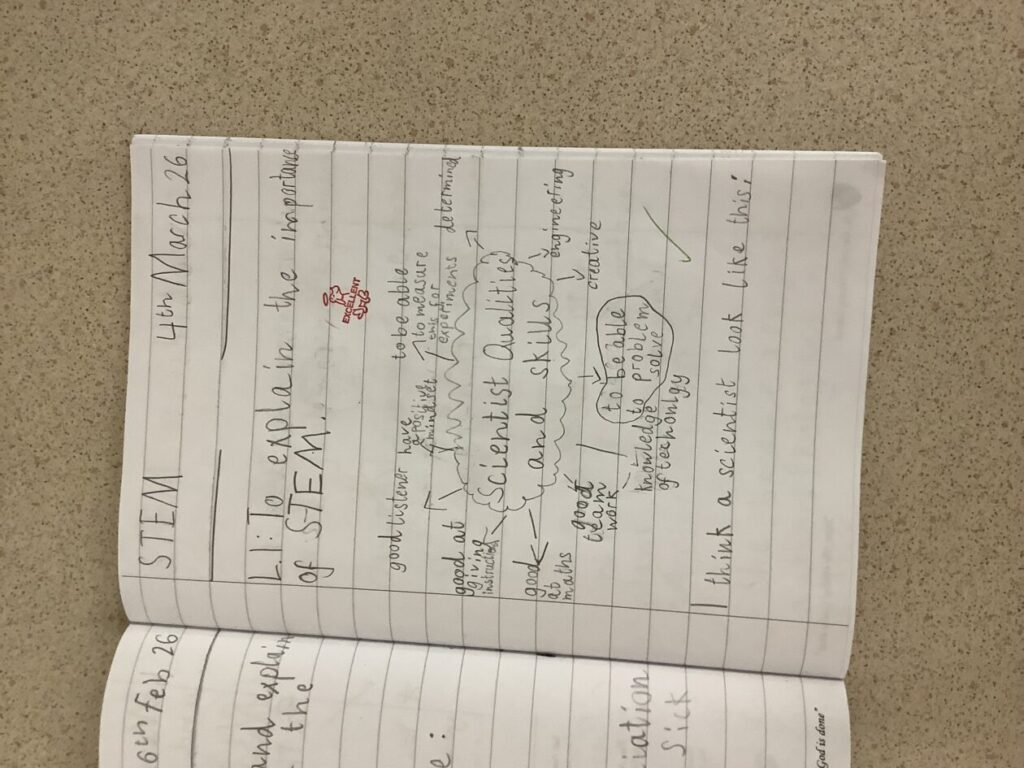 STEM 4th March 26
L.I: To explain the importance
of STEM.
EXCELLENT
good listener
have
a positive
mindset
to be able
to measure
this for
experiments
determind
good at
giving
instructions
Scientist Qualities
and skills
good
at
maths
good
team
work
knowledge
of techonlgy
to be able
to problem
solve
creative
engineering
I think a scientist look like this:
6th Feb 26
and explain
the
e:
iation
Sick
God is done"